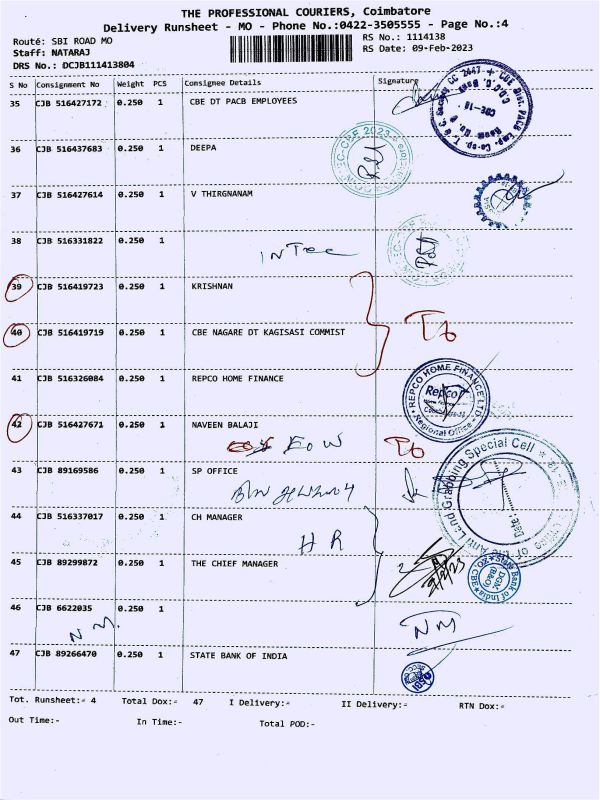 THE PROFESSIONAL COURIERS, Coimbatore
Delivery Runsheet - MO - Phone No.:0422-3505555 - Page No.:4
Routé: SBI ROAD MO
RS No.: 1114138
Staff: NATARAJ
RS Date: 09-Feb-2023
DRS No.: DCJB111413804
S No Consignment No Weight PCS Consignee Details Signature
35 CJB 516427172 0.250 1 CBE DT PACB EMPLOYEES
36 CJB 516437683 0.250 1 DEEPA
37 CJB 516427614 0.250 1 V THIRGNANAM
38 CJB 516331822 0.250 1
39 CJB 516419723 0.250 1 KRISHNAN
40 CJB 516419719 0.250 1 CBE NAGARE DT KAGISASI COMMIST
41 CJB 516326084 0.250 1 REPCO HOME FINANCE
REPCO HOME FINANCE LTD
Repco
Regional Office
42 CJB 516427671 0.250 1 NAVEEN BALAJI
EOW
43 CJB 89169586 0.250 1 SP OFFICE
Land Grabbing Special Cell
Date:
44 CJB 516337017 0.250 1 CH MANAGER
HR
45 CJB 89299872 0.250 1 THE CHIEF MANAGER
9/2/23
46 CJB 6622035 0.250 1
N M.
NM
47 CJB 89266470 0.250 1 STATE BANK OF INDIA
Tot. Runsheet:- 4 Total Dox:- 47 I Delivery:- II Delivery:- RTN Dox:-
Out Time:- In Time:- Total POD:-